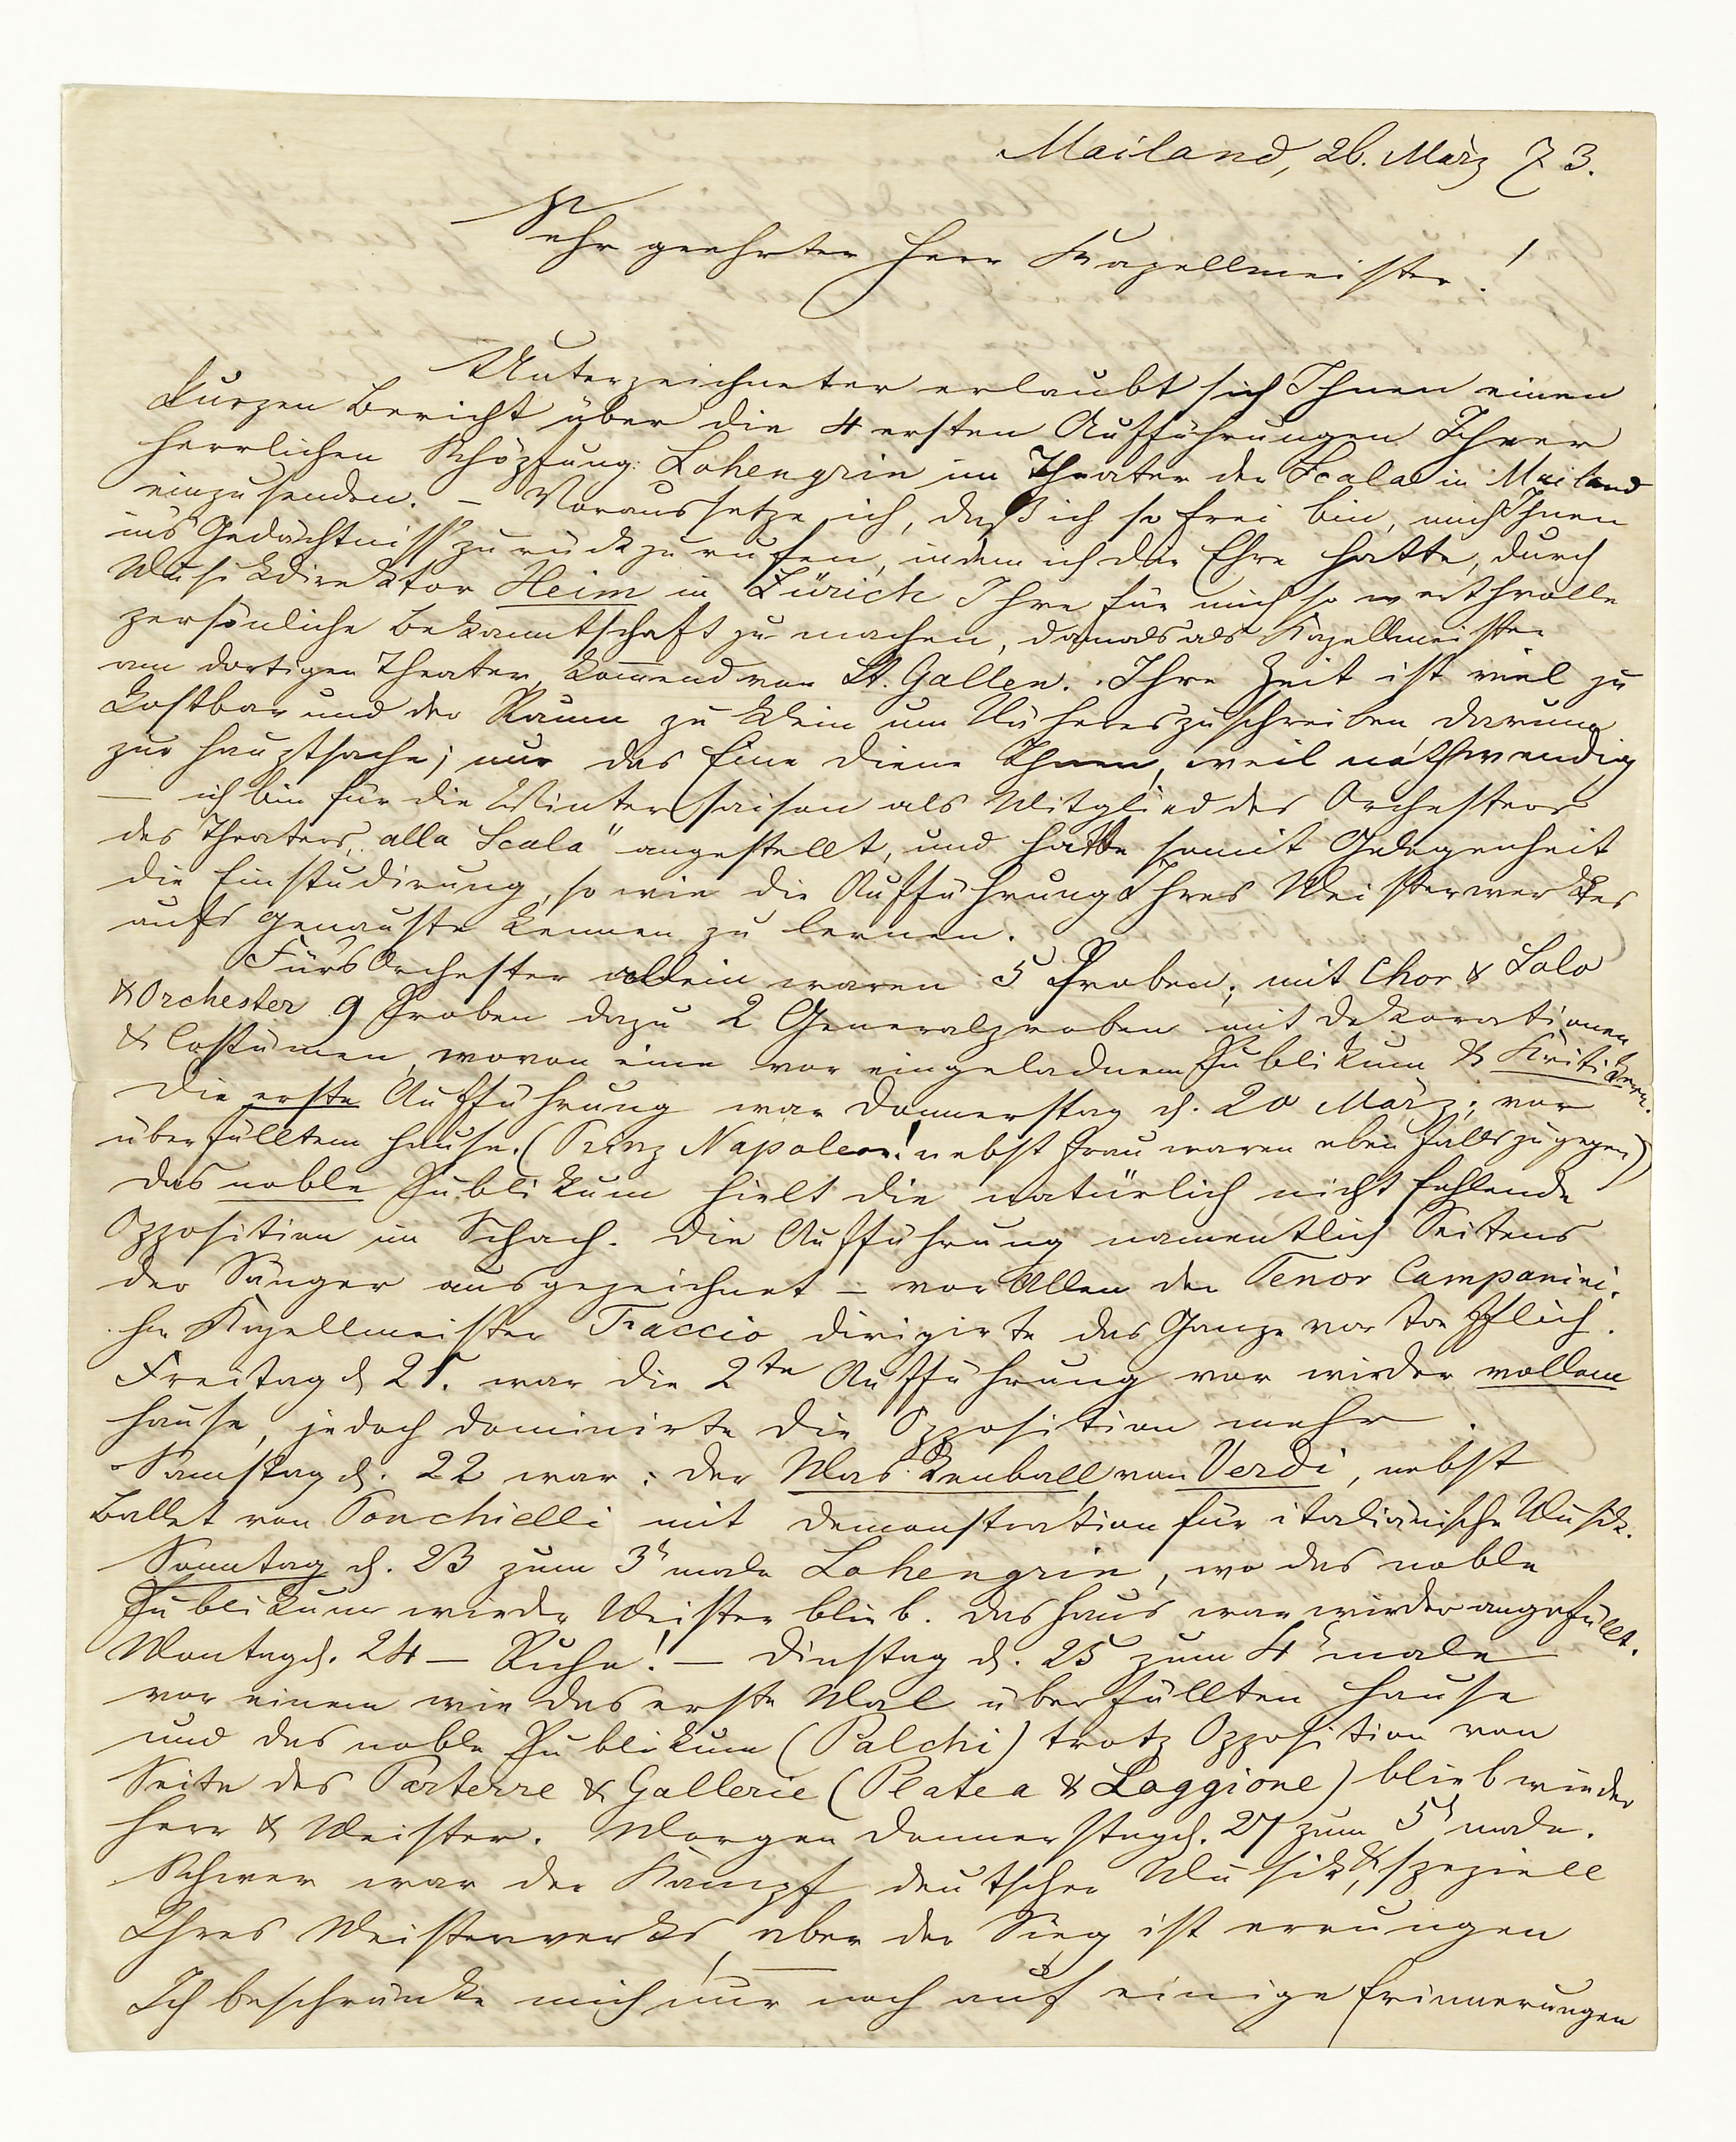 Mailand, 26. März 73.
Sehr geehrter Herr Kapellmeister!
Unterzeichneter erlaubt sich Ihnen einen
kurzen Bericht über die 4 ersten Aufführungen Ihrer
herrlichen Schöpfung: Lohengrin im Theater der Scala in Mailand
einzusenden. – Voraussetze ich, daß ich so frei bin, mich Ihnen
ins Gedächtniss zurückzurufen, indem ich die Ehre hatte, durch
Musikdirektor Heim in Zürich Ihre für mich so werthvolle
persönliche Bekanntschaft zu machen, damals als Kapellmeister
am dortigen Theater, kom̄end von St. Gallen. Ihre Zeit ist viel zu
kostbar und der Raum zu klein um Näheres zu schreiben, darum
zur Hauptsache; nur das Eine diene Ihnen, weil nothwendig
– ich bin für die Wintersaison als Mitglied des Orchesters
des Theaters „alla Scala" angestellt, und hatte somit Gelegenheit
die Einstudirung, so wie die Aufführung Ihres Meisterwerkes
aufs genauste kennen zu lernen.
Fürs Orchester allein waren 5 Proben; mit Chor & Solo
& Orchester 9 Proben dazu 2 Generalproben mit Dekorationen
& Costümen, wovon eine vor eingeladnem Publikum & Kritikern.
Die erste Aufführung war Donnerstag d. 20 März; vor
überfülltem Hause. (Prinz Napoleon! nebst Frau waren ebenfalls zugegen)
Das noble Publikum hielt die natürlich nicht fehlende
Opposition in Schach. Die Aufführung namentlich Seitens
der Sänger ausgezeichnet – vor Allen der Tenor Campanini.
Hr Kapellmeister Faccio dirigirte das Ganze vortrefflich.
Freitag d 21. war die 2te Aufführung vor wieder vollem
Hause, jedoch dominirte die Opposition mehr.
Samstag d. 22 war: der Maskenball von Verdi, nebst
Ballet von Ponchielli mit Demonstration für italiänische Musik.
Sonntag d. 23 zum 3t male Lohengrin, wo das noble
Publikum wieder Meister blieb. Das Haus war wieder angefüllt.
Montag d. 24 – Ruhe! – Dienstag d. 25 zum 4t male
vor einem wie das erste Mal überfüllten Hause
und das noble Publikum (Palchi) trotz Opposition von
Seite des Parterre & Gallerie (Platea & Loggione) blieb wieder
Herr & Meister. Morgen Donnerstag d. 27 zum 5t male.
Schwer war der Kampf deutscher Musik, & speziell
Ihres Meisterwerks, aber der Sieg ist errungen!
Ich beschränke mich nur noch auf einige Erinnerungen